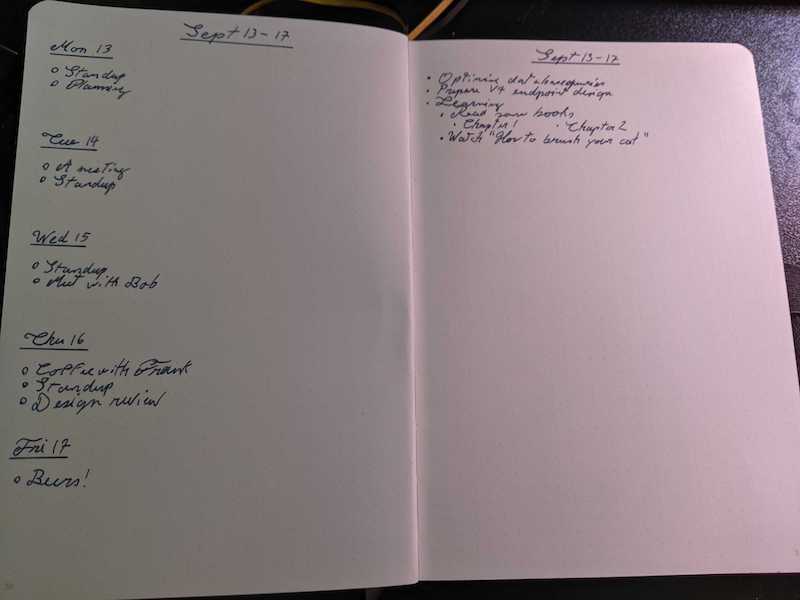 Sept 13-17
Mon 13
Standup
Planning
Tue 14
A meeting
Standup
Wed 15
Standup
Meet with Bob
Thu 16
Coffee with Frank
Standup
Design review
Fri 17
Beers!
Sept 13-17
Optimize database queries
Prepare V4 endpoint design
Learning
Read some books
Chapter 1 Chapter 2
Watch "How to brush your cat"